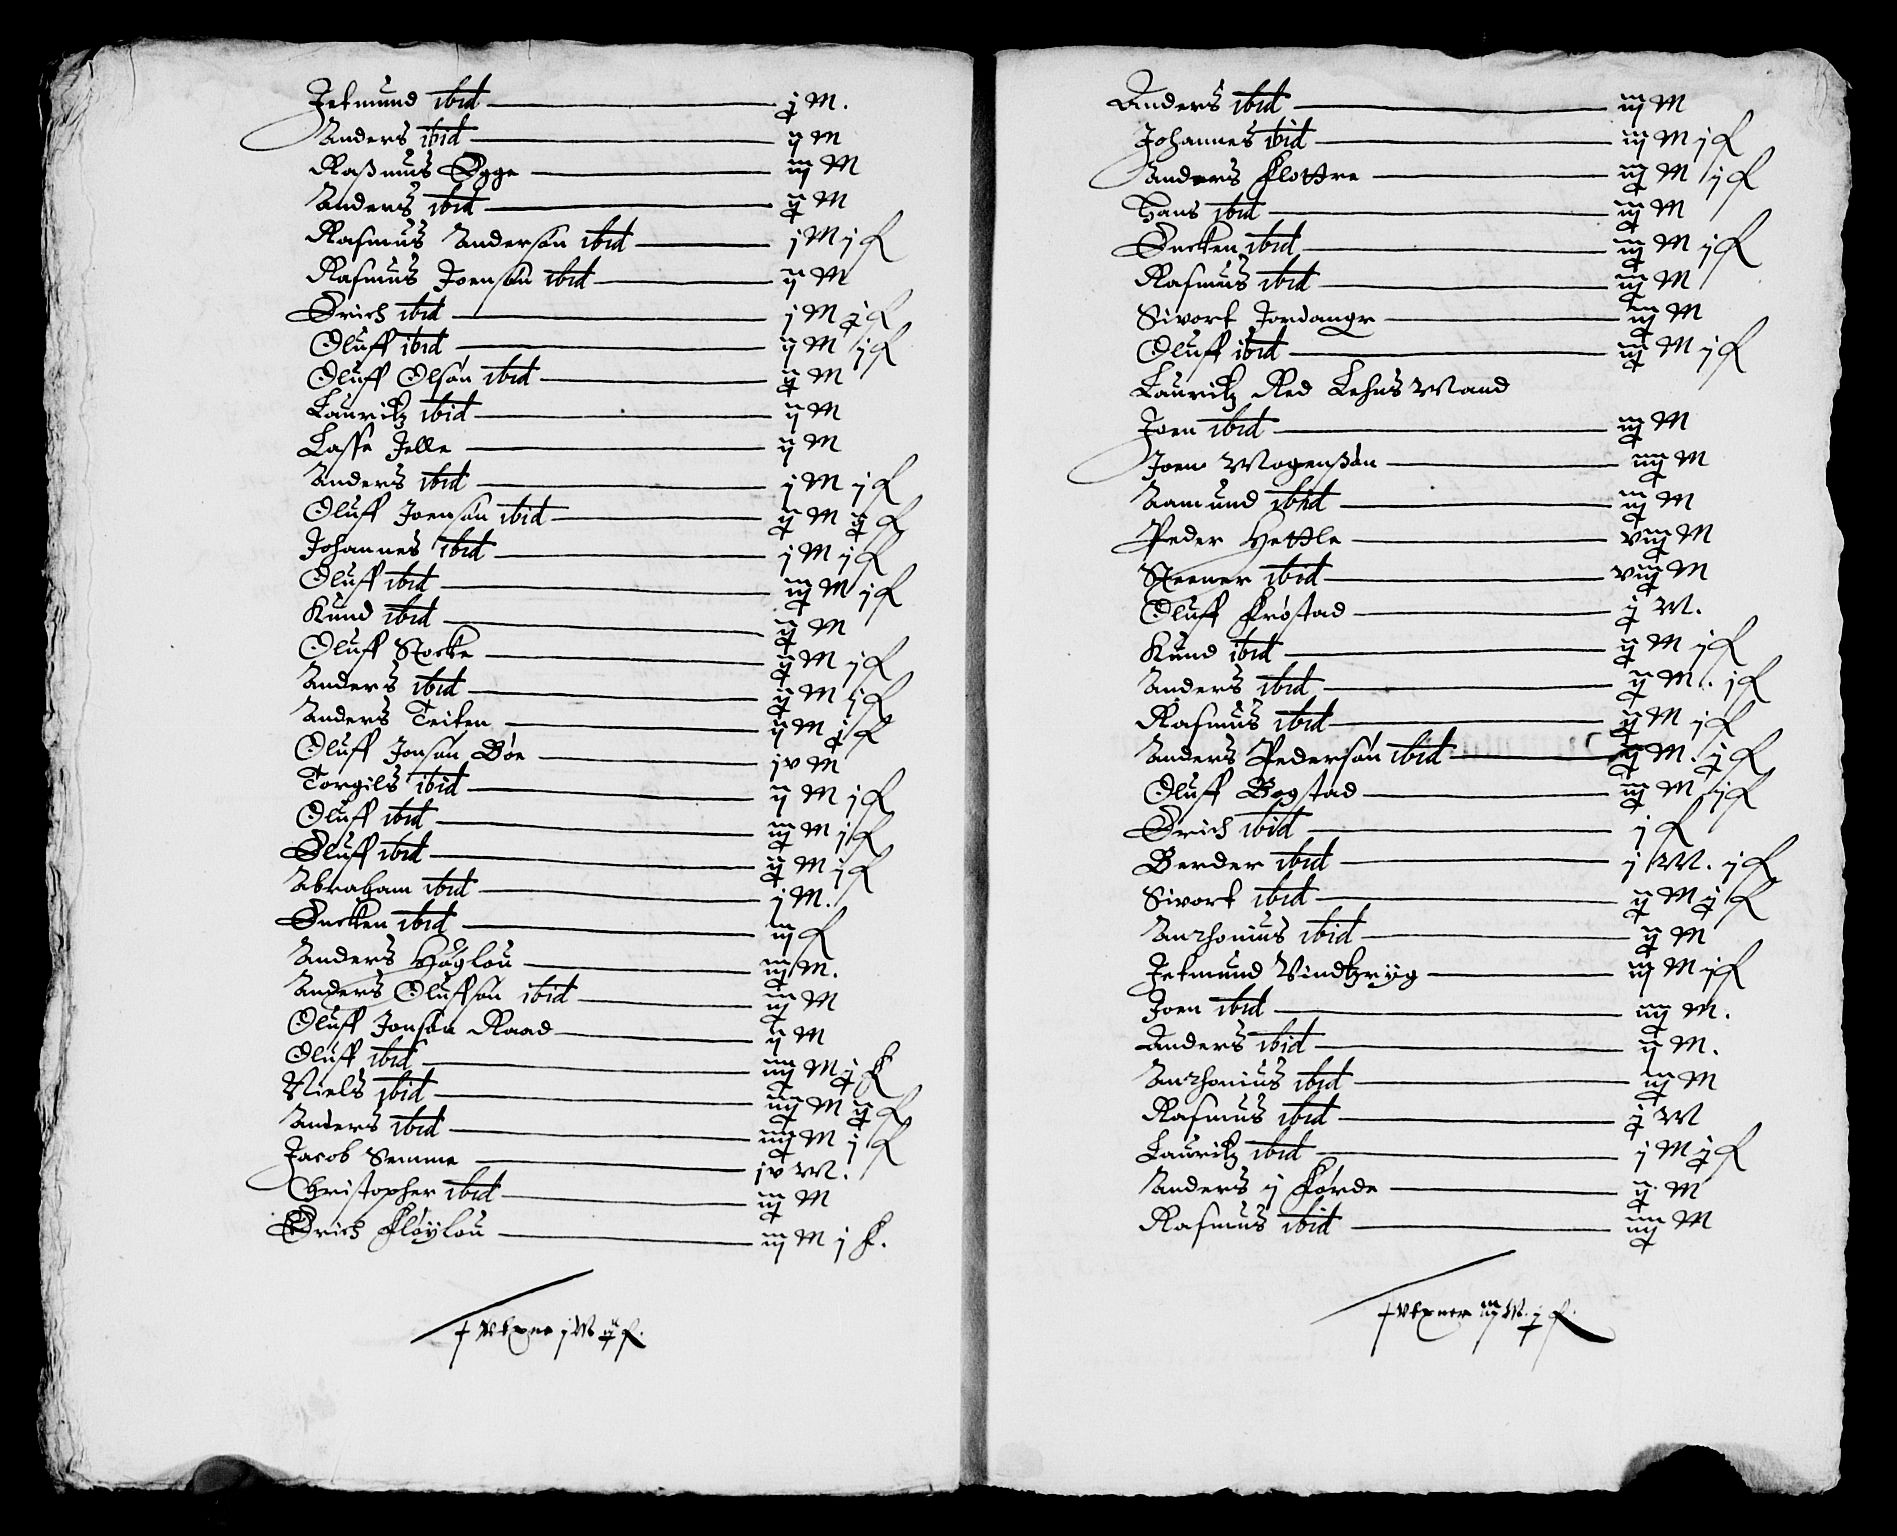 Jetmund ibid j M.
Anders ibid ij M
Raßmus Egge iij M
Anders ibid ij M
Rasmus Anderson ibid j M j
Rasmus Joenson ibid ij M
Erich ibid j M j
Oluff ibid ij M j
Oluff Olson ibid ij M
Lauritz ibid ij M
Lasse Jelle ij M
Anders ibid j M j
Oluff Joenson ibid ij M ij
Johannes ibid j M j
Oluff ibid iij M j
Knud ibid ij M
Oluff ij M j
Anders ibid ij M j
Anders Teiten ij M j
Oluff Jonson Bøe jv M
Torgils ibid ij M j
Oluff ibid iij M j
Oluff ibid ij M j
Abraham ibid j M.
Encken ibid iij
Anders Høglou iij M.
Anders Olufson ibid iij M
Oluff Jonson Raad ij M
Oluff ibid iiij M j
Niels ibid iiij M ij
Anders ibid iiij M j
Jacob Semme jv M.
Christopher ibid iij M
Erich Fløylou iij M j
j M ij
Anders ibid iij M
Johannes ibid iij M j
Anders Flottre iij M j
Hans ibid iij M
Encken ibid iij M j
Rasmus ibid iij M
Sivort Jordangr iij M
Oluff ibid iij M j
Lauritz Red Lehns Mand
Joen ibid iij M
Joen Mogenßøn iiij M
Aamund ibid iij M
Peder Hettle viij M
Steener ibid viij M
Oluff Frøstad j M.
Knud ibid ij M j
Anders ibid ij M. j
Rasmus ibid ij M j
Anders Pederson ibid ij M. j
Oluff Bogstad iij M j
Erich ibid j
Berder ibid j M. j
Sivort ibid ij M j
Anthonius ibid ij M
Jetmund Vindtzryg iij M j
Joen ibid iiij M.
Anders ibid ij M.
Anthonius ibid iij M
Rasmus ibid j M
Lauritz ibid j M j
Anders ij Førde ij M
Rasmus ibid iiij M
iij M. j